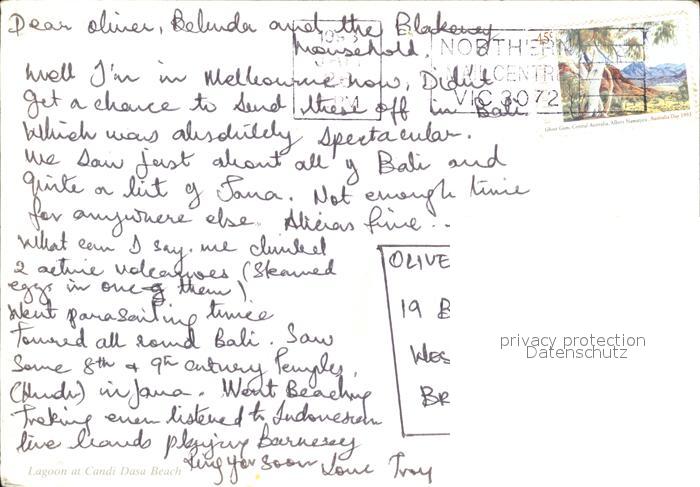 Dear Oliver, Belinda and the Blakeney
household.
Well I'm in Melbourne now, Didn't
get a chance to send these off in Bali.
Which was absolutely spectacular.
We saw just about all of Bali and
Quite a bit of Java. Not enough time
for anywhere else. Alicias fine...
What can I say. we climbed
2 active volcanoes (Steamed
eggs in one of them)
Went parasailing twice
Toured all round Bali. Saw
Some 8th & 9th century Temples,
(Hindu) in Java. Went Beaching
Treking even listened to Indonesian
live bands playing
Ring you soon Love Troy
NORTHERN
CENTRE
VIC 3072
45c
Ghost Gum, Central Australia, Albert Namatjira, Australia Day 1993
OLIVE
19 B
WES
BR
privacy protection
Datenschutz
Lagoon at Candi Dasa Beach